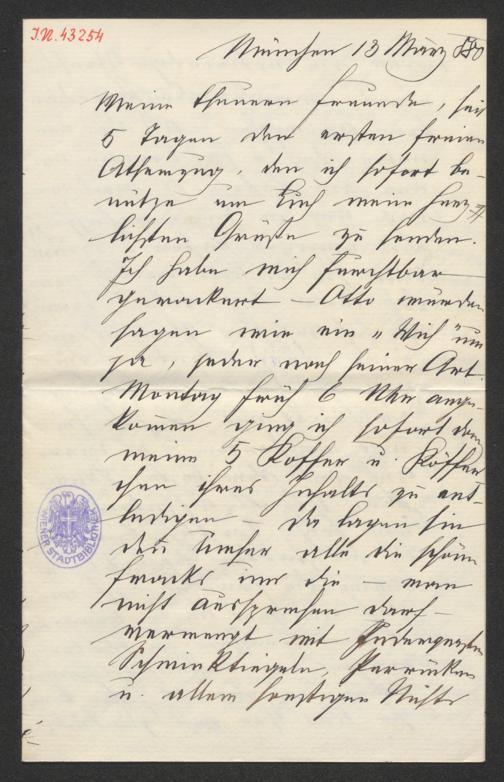 I.N. 43254
München 13 März 880
Meine theuern Freunde, seit
5 Tagen den ersten freien
Athemzug, den ich sofort be-
nütze um Euch meine herz-
lichsten Grüße zu senden.
Ich habe mich furchtbar
gerackert – Otto würde
sagen wie ein „Vich" nun
ja, jeder nach seiner Art.
Montag früh 6 Uhr ange-
kommen ging ich sofort dran
meine 5 Koffer u. Köffer-
chen ihres Inhalts zu ent-
ledigen – da lagen sie
denn umher alle die schönen
Fracks und die – man
nicht aussprechen darf –
vermengt mit
Schminktiegeln, Perrücken
u. allem sonstigen
WIENER STADTBIBLIOTHEK